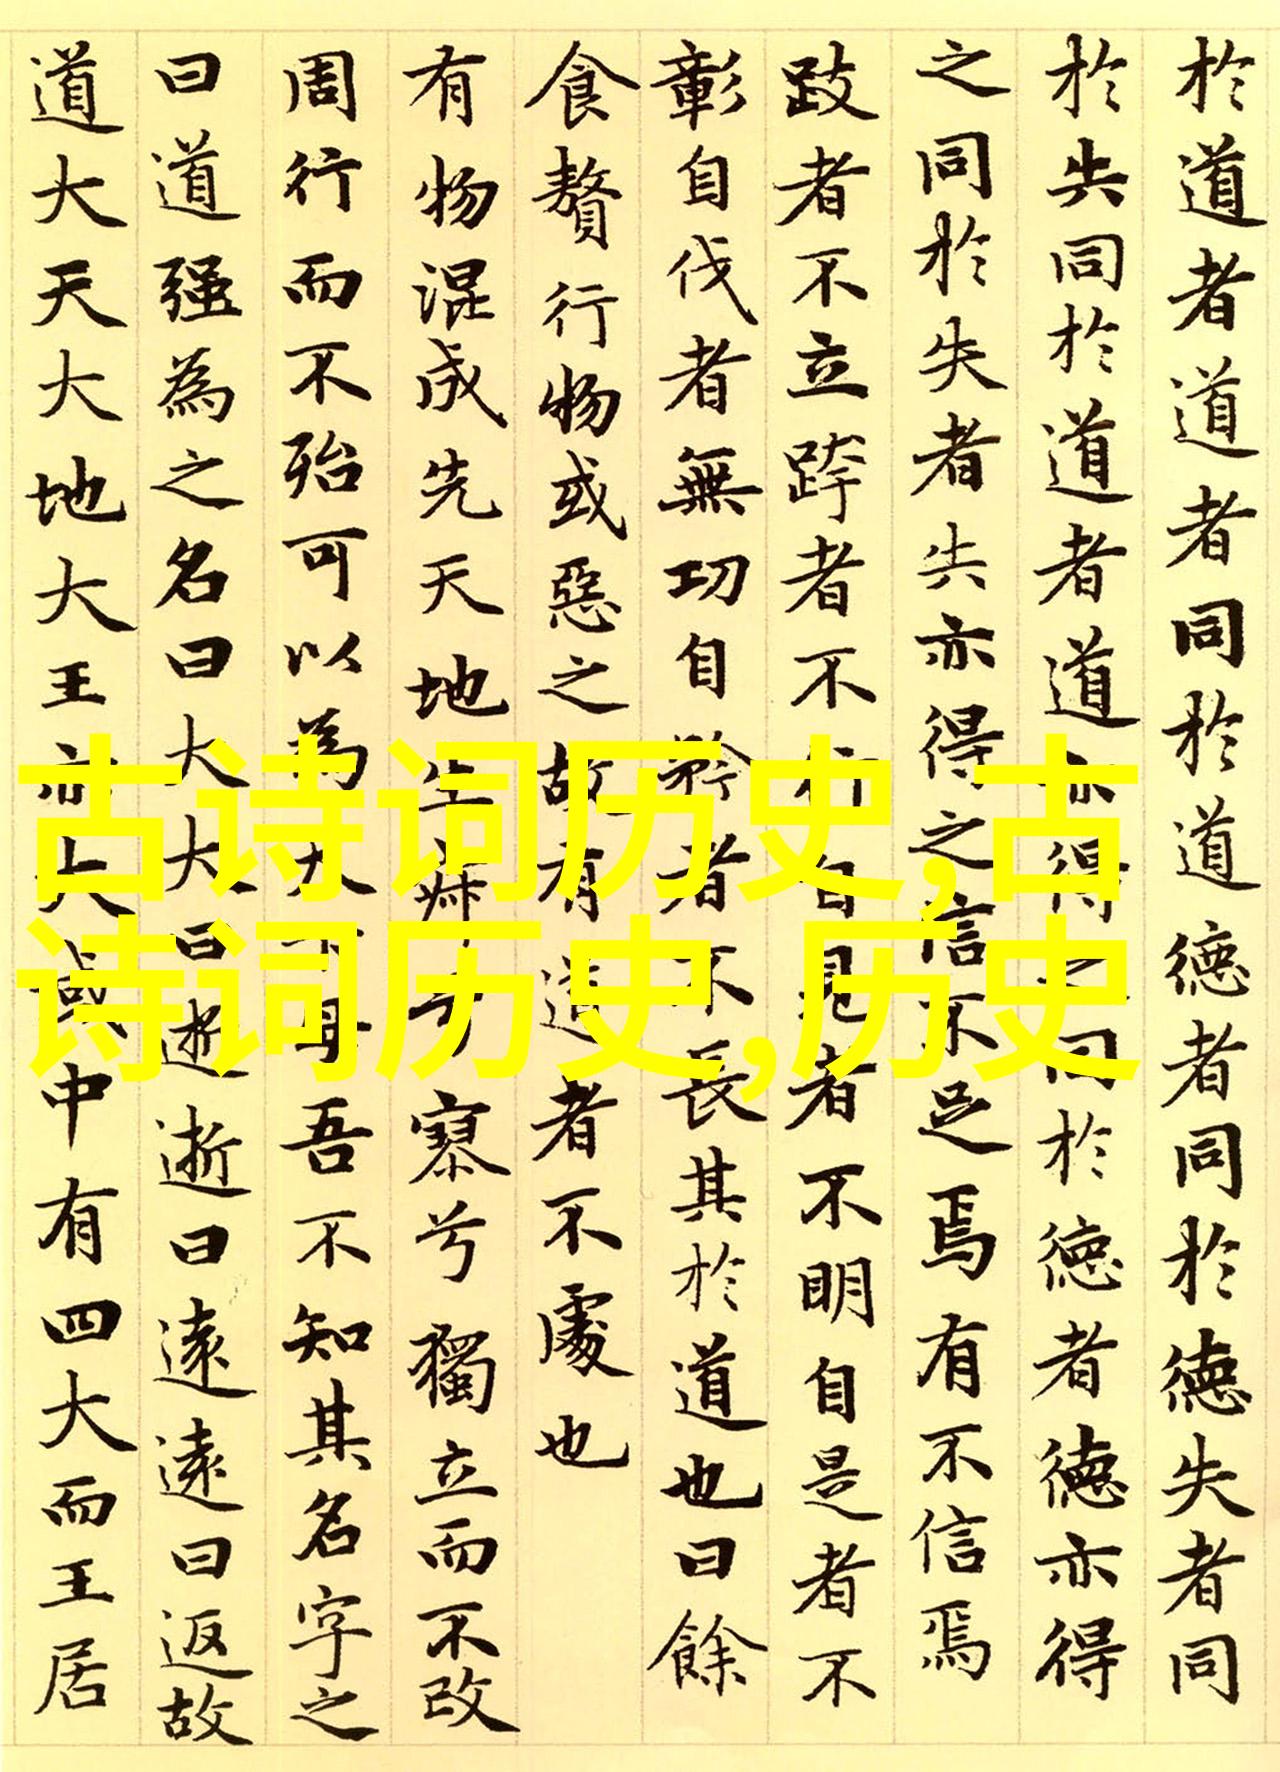 於道者道者同於道德者同於德失者同
於失同於道者道亦得之同於德者德亦得
之同於失者失亦得之信不足焉有不信焉
跂者不立跨者不行自見者不明自是者不
彰自伐者無功自矜者不長其於道也曰餘
食贅行物或惡之故有道者不處也
有物混成先天地生寂兮寥兮獨立而不改
周行而不殆可以為天下母吾不知其名字之
曰道强為之名曰大大曰逝逝曰遠遠曰返故
道大天大地大王亦大域中有四大而王居
古诗词历史,古
诗词历史,历史